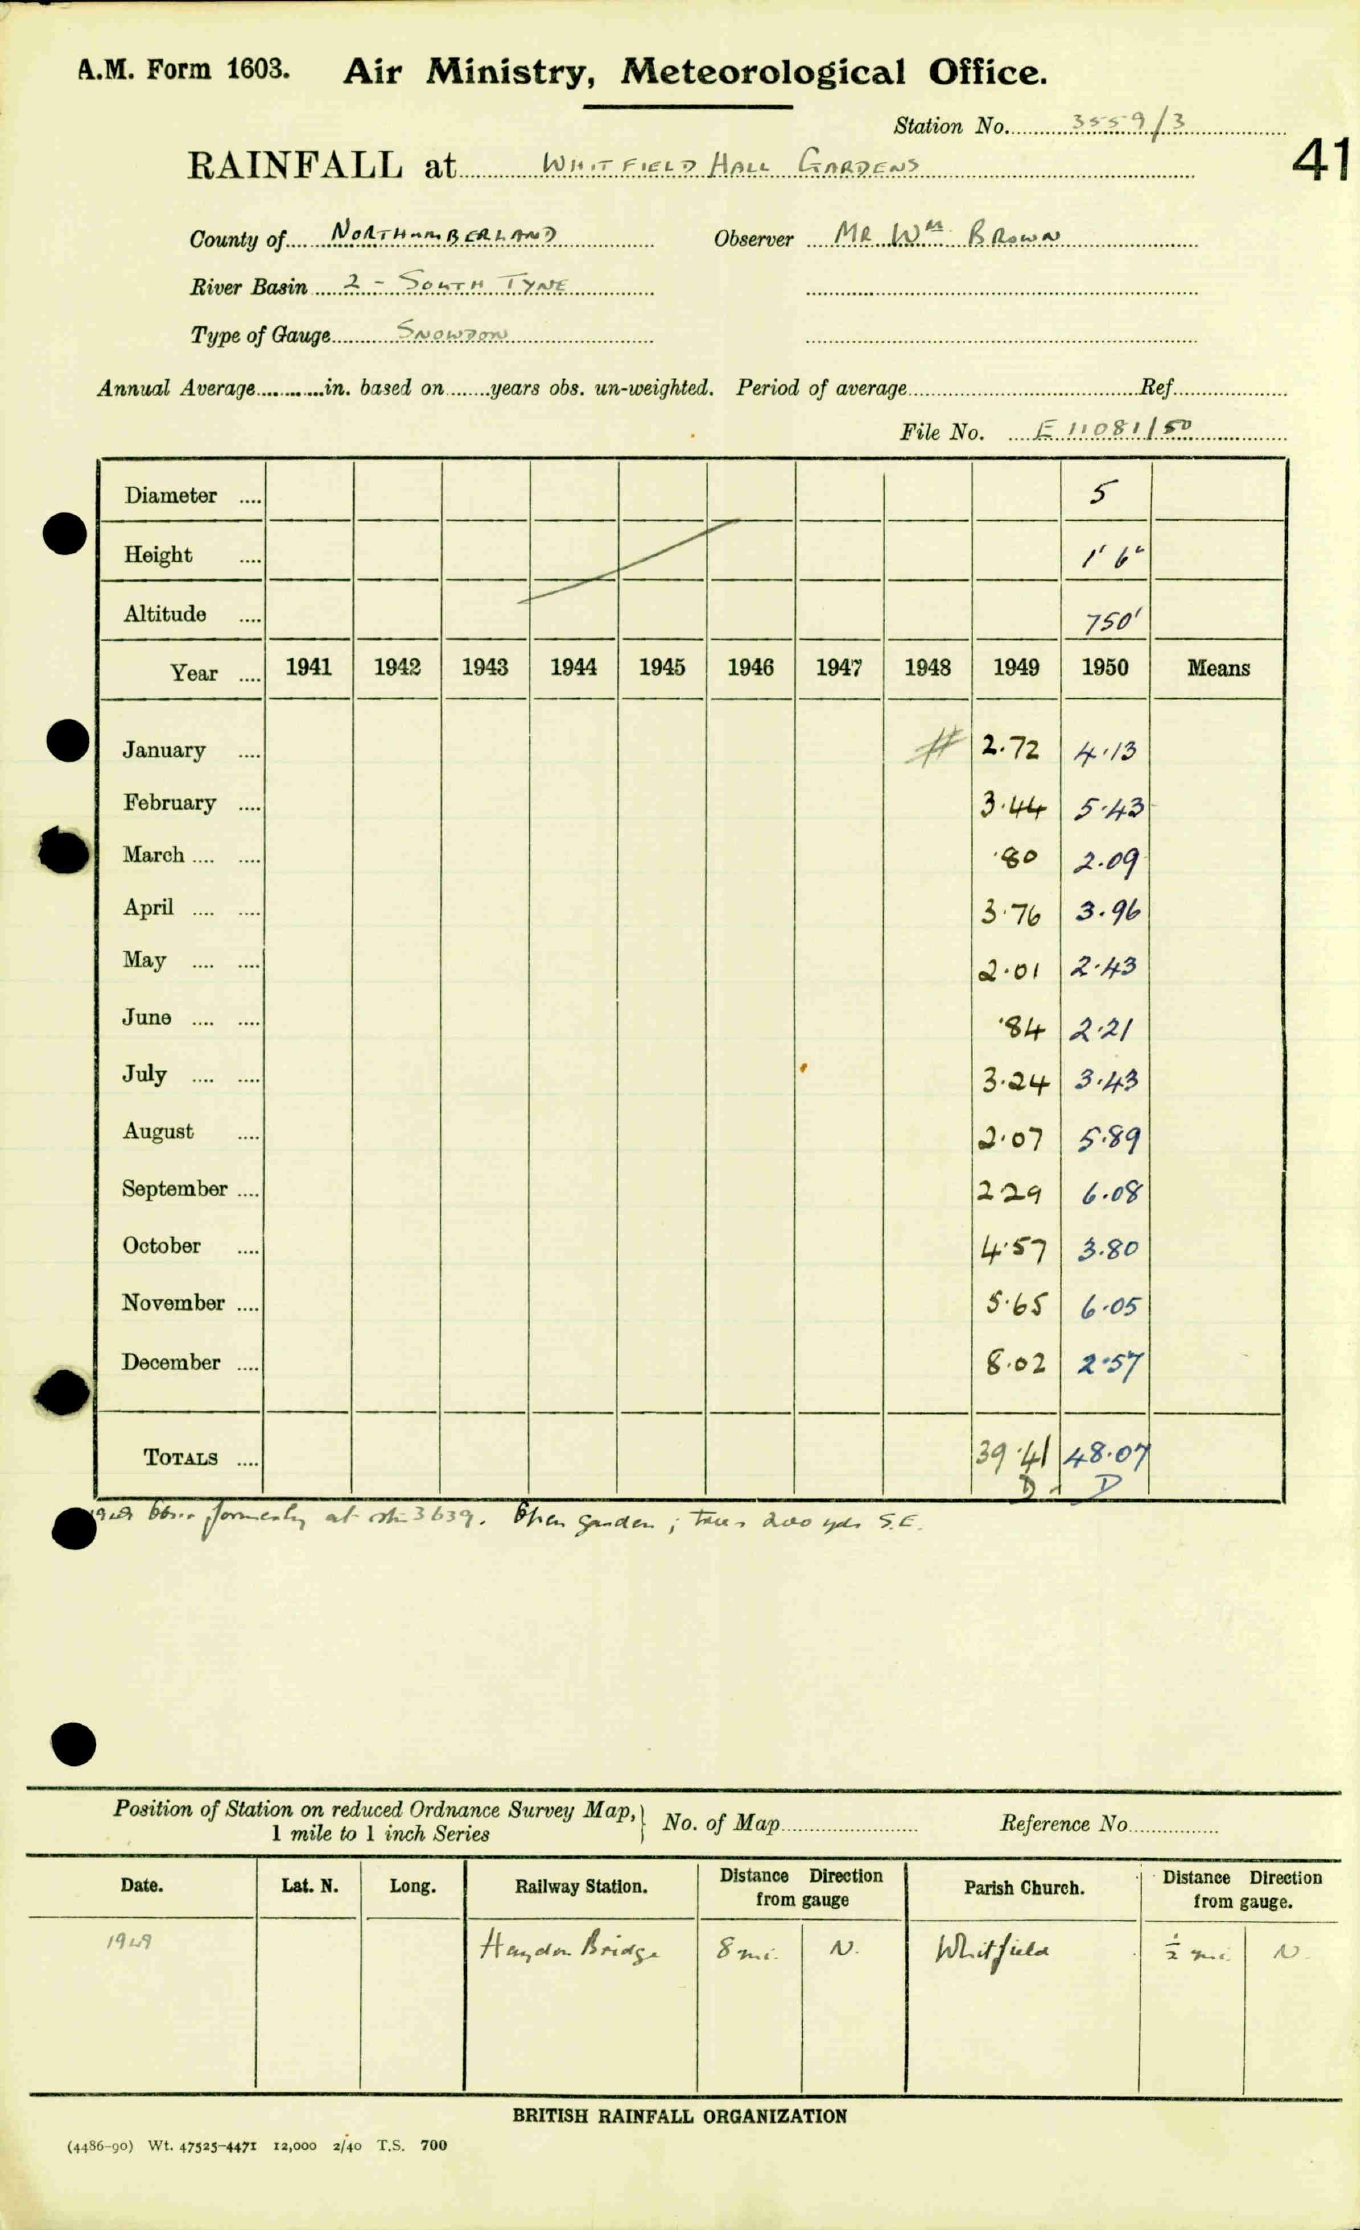 A.M. Form 1603. Air Ministry, Meteorological Office.
Station No. 3559/3
41
RAINFALL at WHITFIELD HALL GARDENS
County of NORTHUMBERLAND Observer MR Wm BROWN
River Basin 2 - SOUTH TYNE
Type of Gauge SNOWDON
Annual Average in. based on years obs. un-weighted. Period of average Ref.
File No. E 11081/50
Diameter .... 5
Height .... 1' 6"
Altitude .... 750'
Year .... 1941 1942 1943 1944 1945 1946 1947 1948 1949 1950 Means
January .... # 2.72 4.13
February .... 3.44 5.43
March .... .... .80 2.09
April .... .... 3.76 3.96
May .... .... 2.01 2.43
June .... .... .84 2.21
July .... .... 3.24 3.43
August .... 2.07 5.89
September .... 2.29 6.08
October .... 4.57 3.80
November .... 5.65 6.05
December .... 8.02 2.57
TOTALS .... 39.41 48.07
D D
1949 formerly at 3639. Open garden; trees 200 yds S.E.
Position of Station on reduced Ordnance Survey Map, 1 mile to 1 inch Series } No. of Map Reference No.
Date. Lat. N. Long. Railway Station. Distance Direction from gauge Parish Church. Distance Direction from gauge.
1949 Haydon Bridge 8 mi. N. Whitfield ½ mi. N
BRITISH RAINFALL ORGANIZATION
(4486-90) Wt. 47525-4471 12,000 2/40 T.S. 700